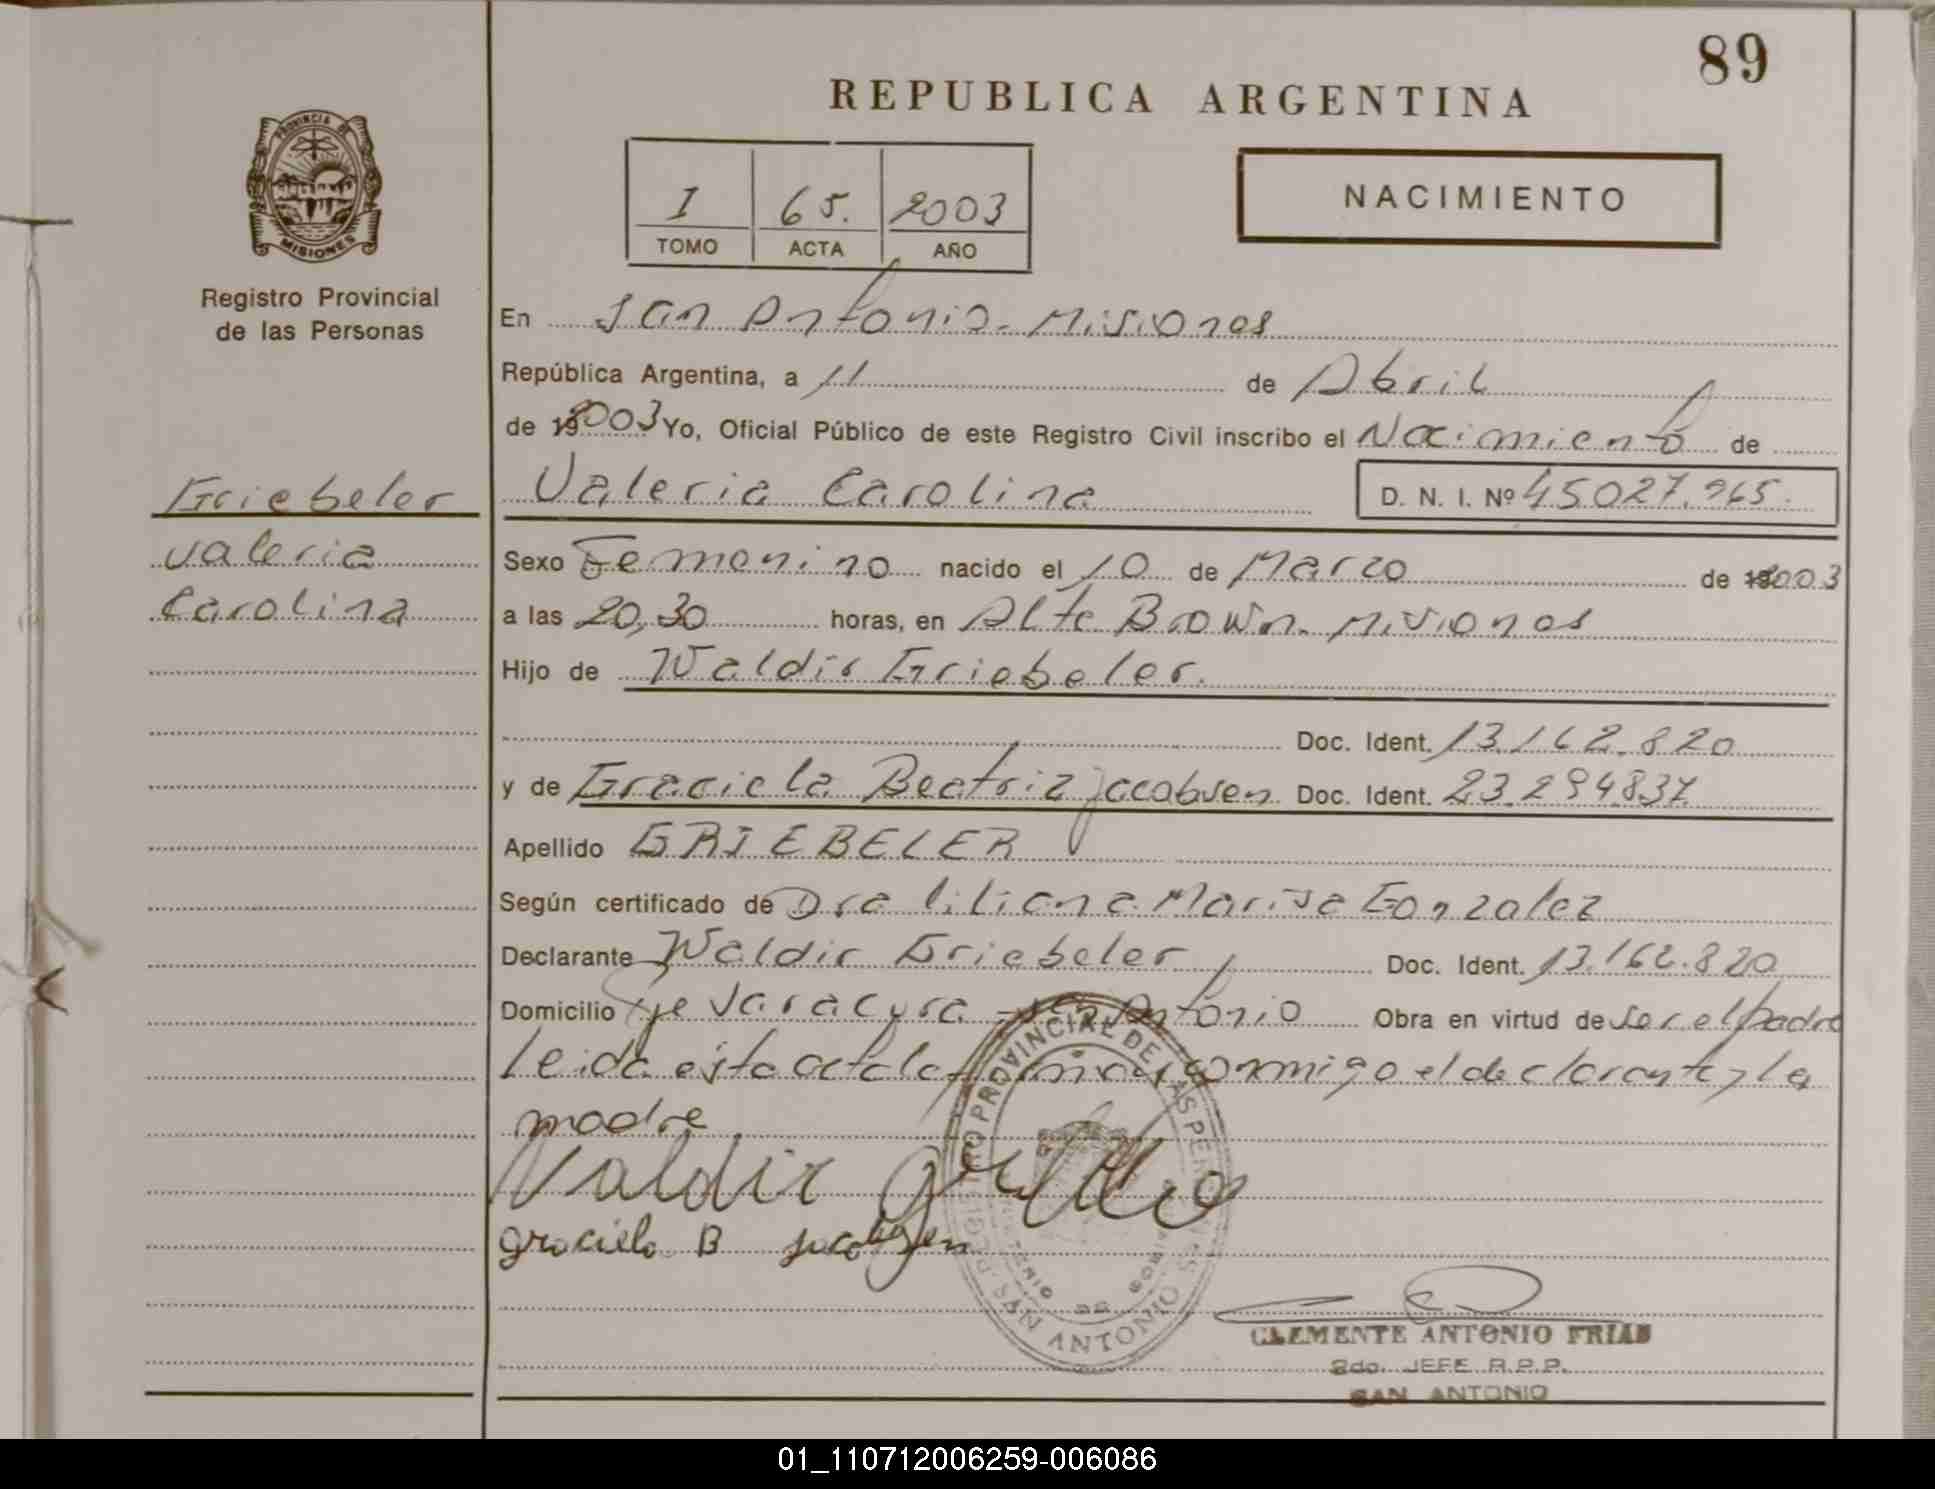 89
REPUBLICA ARGENTINA
PROVINCIA DE
MISIONES
Registro Provincial
de las Personas
I 65. 2003
TOMO ACTA AÑO
NACIMIENTO
En San Antonio - Misiones
República Argentina, a 11 de Abril
de 2003 Yo, Oficial Público de este Registro Civil inscribo el Nacimiento de
Griebeler
Valeria
Carolina
Valeria Carolina D. N. I. Nº 45027.965.
Sexo Femenino nacido el 10 de Marzo de 2003
a las 20,30 horas, en Alte Brown. Misiones
Hijo de Waldir Griebeler.
Doc. Ident. 13.162.820
y de Graciela Beatriz jacobsen Doc. Ident. 23.294837
Apellido GRIEBELER
Según certificado de Dra liliana Marisa Gonzalez
Declarante Waldir Griebeler Doc. Ident. 13.162.820
Domicilio Yacaracysa - San Antonio Obra en virtud de ser el padre
leida esta acta la firman conmigo el declarante y la
madre
Valdir
graciela B jacobsen
REGISTRO PROVINCIAL DE LAS PERSONAS
SAN ANTONIO
CLEMENTE ANTONIO FRIAS
2do. JEFE R.P.P.
SAN ANTONIO
01_110712006259-006086